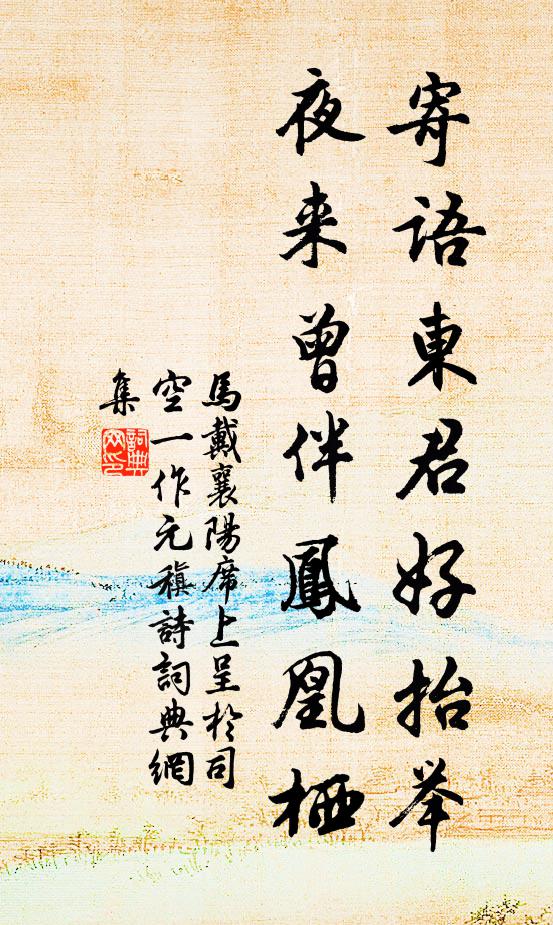 寄语東君好抬举
夜来曾伴鳳凰栖
馬戴襄陽席上呈於司
空一作元稹詩詞典網
集
詞典网印